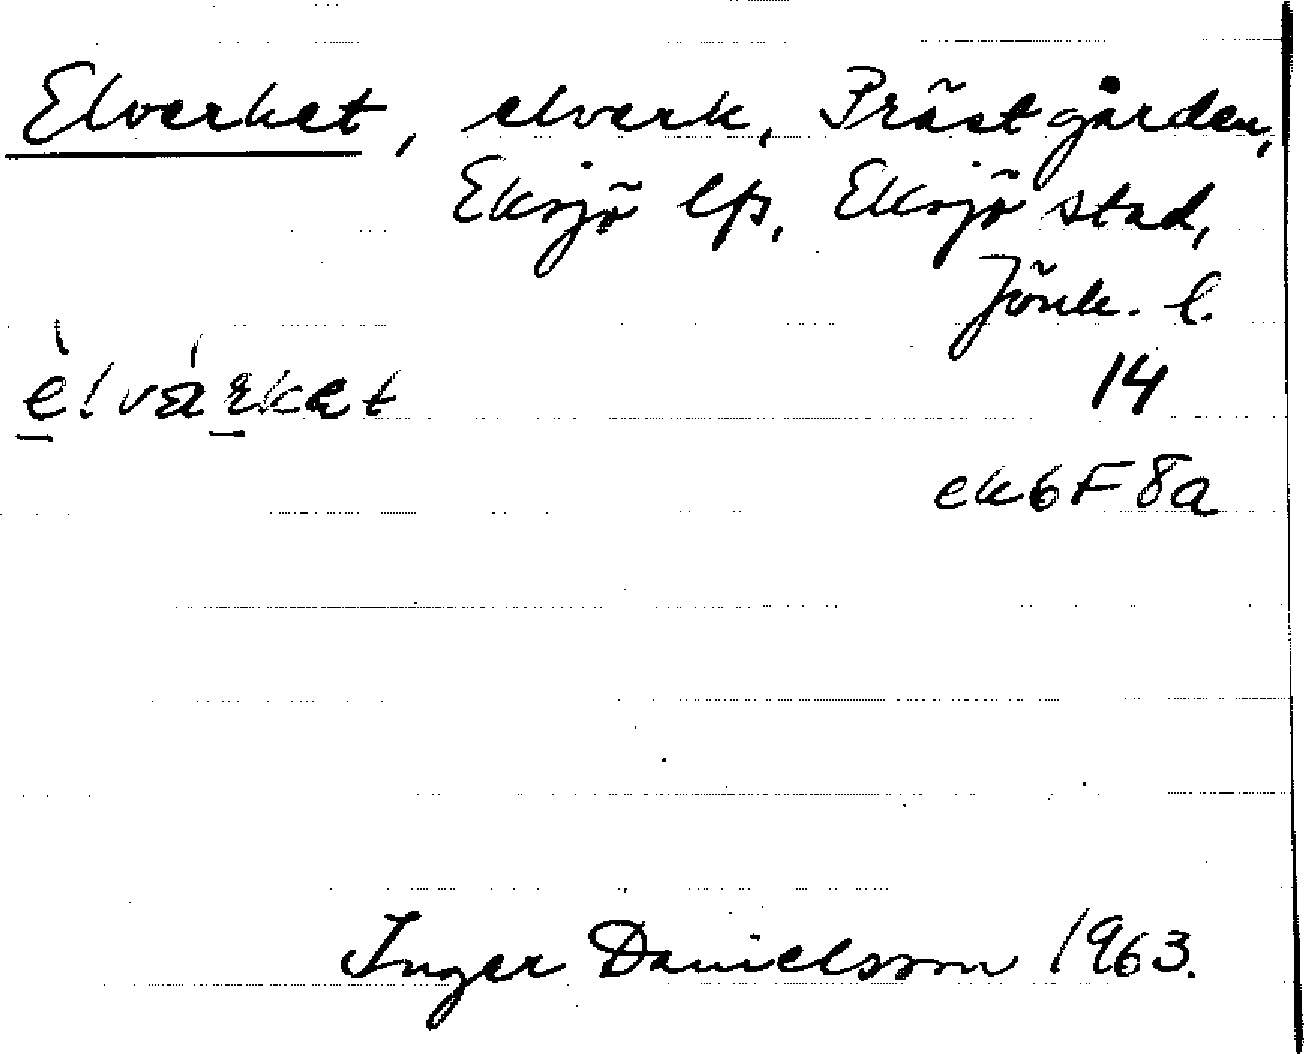 Elverket, elverk, Prästgården,
Eksjö lfs, Eksjö stad,
Jönk. l.
èlvárket
14
ek6F8a
Inger Danielsson 1963.